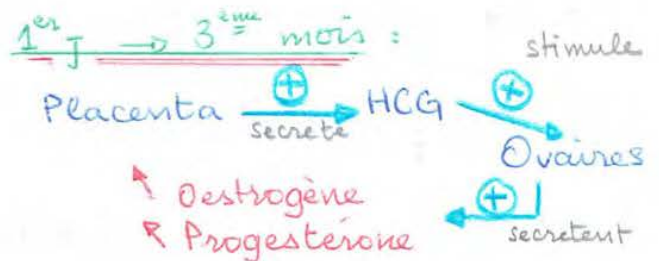 1er J → 3ème mois :
stimule
Placenta ⊕ HCG ⊕
secrete
Ovaires
↖ Oestrogène ⊕
↖ Progestérone secretent